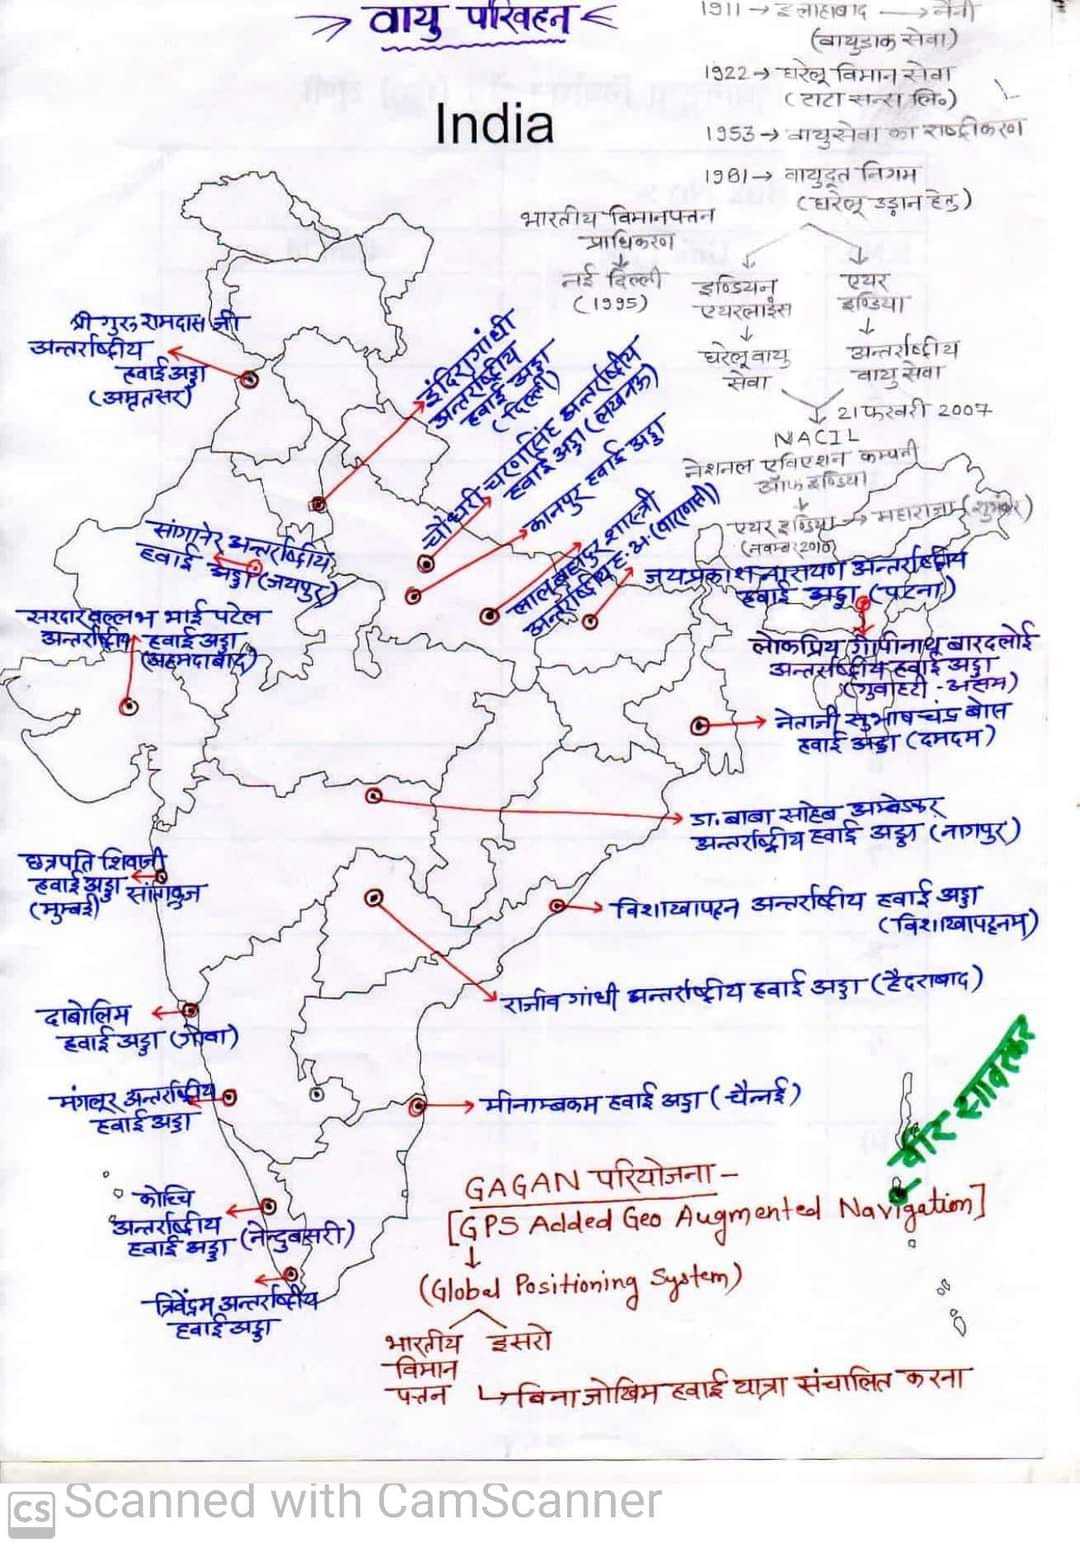 वायु परिवहन
India
1911 → इलाहाबाद → नैनी
(वायुडाक सेवा)
1922 → घरेलू विमान सेवा
(टाटा सन्स लि०)
1953 → वायुसेवा का राष्ट्रीकरण
1981 → वायुदूत निगम
(घरेलू उड़ान हेतु)
भारतीय विमानपत्तन
प्राधिकरण
नई दिल्ली
(1995)
इण्डियन
एयरलाइंस
घरेलू वायु
सेवा
एयर
इण्डिया
अन्तर्राष्ट्रीय
वायु सेवा
21 फरवरी 2007
NACIL
नेशनल एविएशन कम्पनी
ऑफ इण्डिया
एयर इण्डिया → महाराजा
(नवम्बर 2010)
श्री गुरु रामदास जी
अन्तर्राष्ट्रीय
हवाई अड्डा
(अमृतसर)
इंदिरा गांधी
अन्तर्राष्ट्रीय
हवाई अड्डा
(दिल्ली)
चौधरी चरणसिंह अन्तर्राष्ट्रीय
हवाई अड्डा (लखनऊ)
कानपुर हवाई अड्डा
लाल बहादुर शास्त्री
अन्तर्राष्ट्रीय ह. अ. (वाराणसी)
सांगानेर अन्तर्राष्ट्रीय
हवाई अड्डा (जयपुर)
जयप्रकाश नारायण अन्तर्राष्ट्रीय
हवाई अड्डा (पटना)
सरदार वल्लभ भाई पटेल
अन्तर्राष्ट्रीय हवाई अड्डा
(अहमदाबाद)
लोकप्रिय गोपीनाथ बारदलोई
अन्तर्राष्ट्रीय हवाई अड्डा
(गुवाहटी - असम)
नेताजी सुभाष चंद्र बोस
हवाई अड्डा (दमदम)
डा. बाबा साहेब अम्बेडकर
अन्तर्राष्ट्रीय हवाई अड्डा (नागपुर)
छत्रपति शिवाजी
हवाई अड्डा सांताक्रुज
(मुम्बई)
विशाखापट्टन अन्तर्राष्ट्रीय हवाई अड्डा
(विशाखापट्टनम)
राजीव गांधी अन्तर्राष्ट्रीय हवाई अड्डा (हैदराबाद)
दाबोलिम
हवाई अड्डा (गोवा)
मंगलूर अन्तर्राष्ट्रीय
हवाई अड्डा
मीनाम्बकम हवाई अड्डा (चैन्नई)
वीर सावरकर
कोच्चि
अन्तर्राष्ट्रीय
हवाई अड्डा (नेन्दुबासरी)
त्रिवेंद्रम अन्तर्राष्ट्रीय
हवाई अड्डा
GAGAN परियोजना -
[GPS Added Geo Augmented Navigation]
(Global Positioning System)
भारतीय
विमान
पत्तन
इसरो
बिना जोखिम हवाई यात्रा संचालित करना
CS Scanned with CamScanner